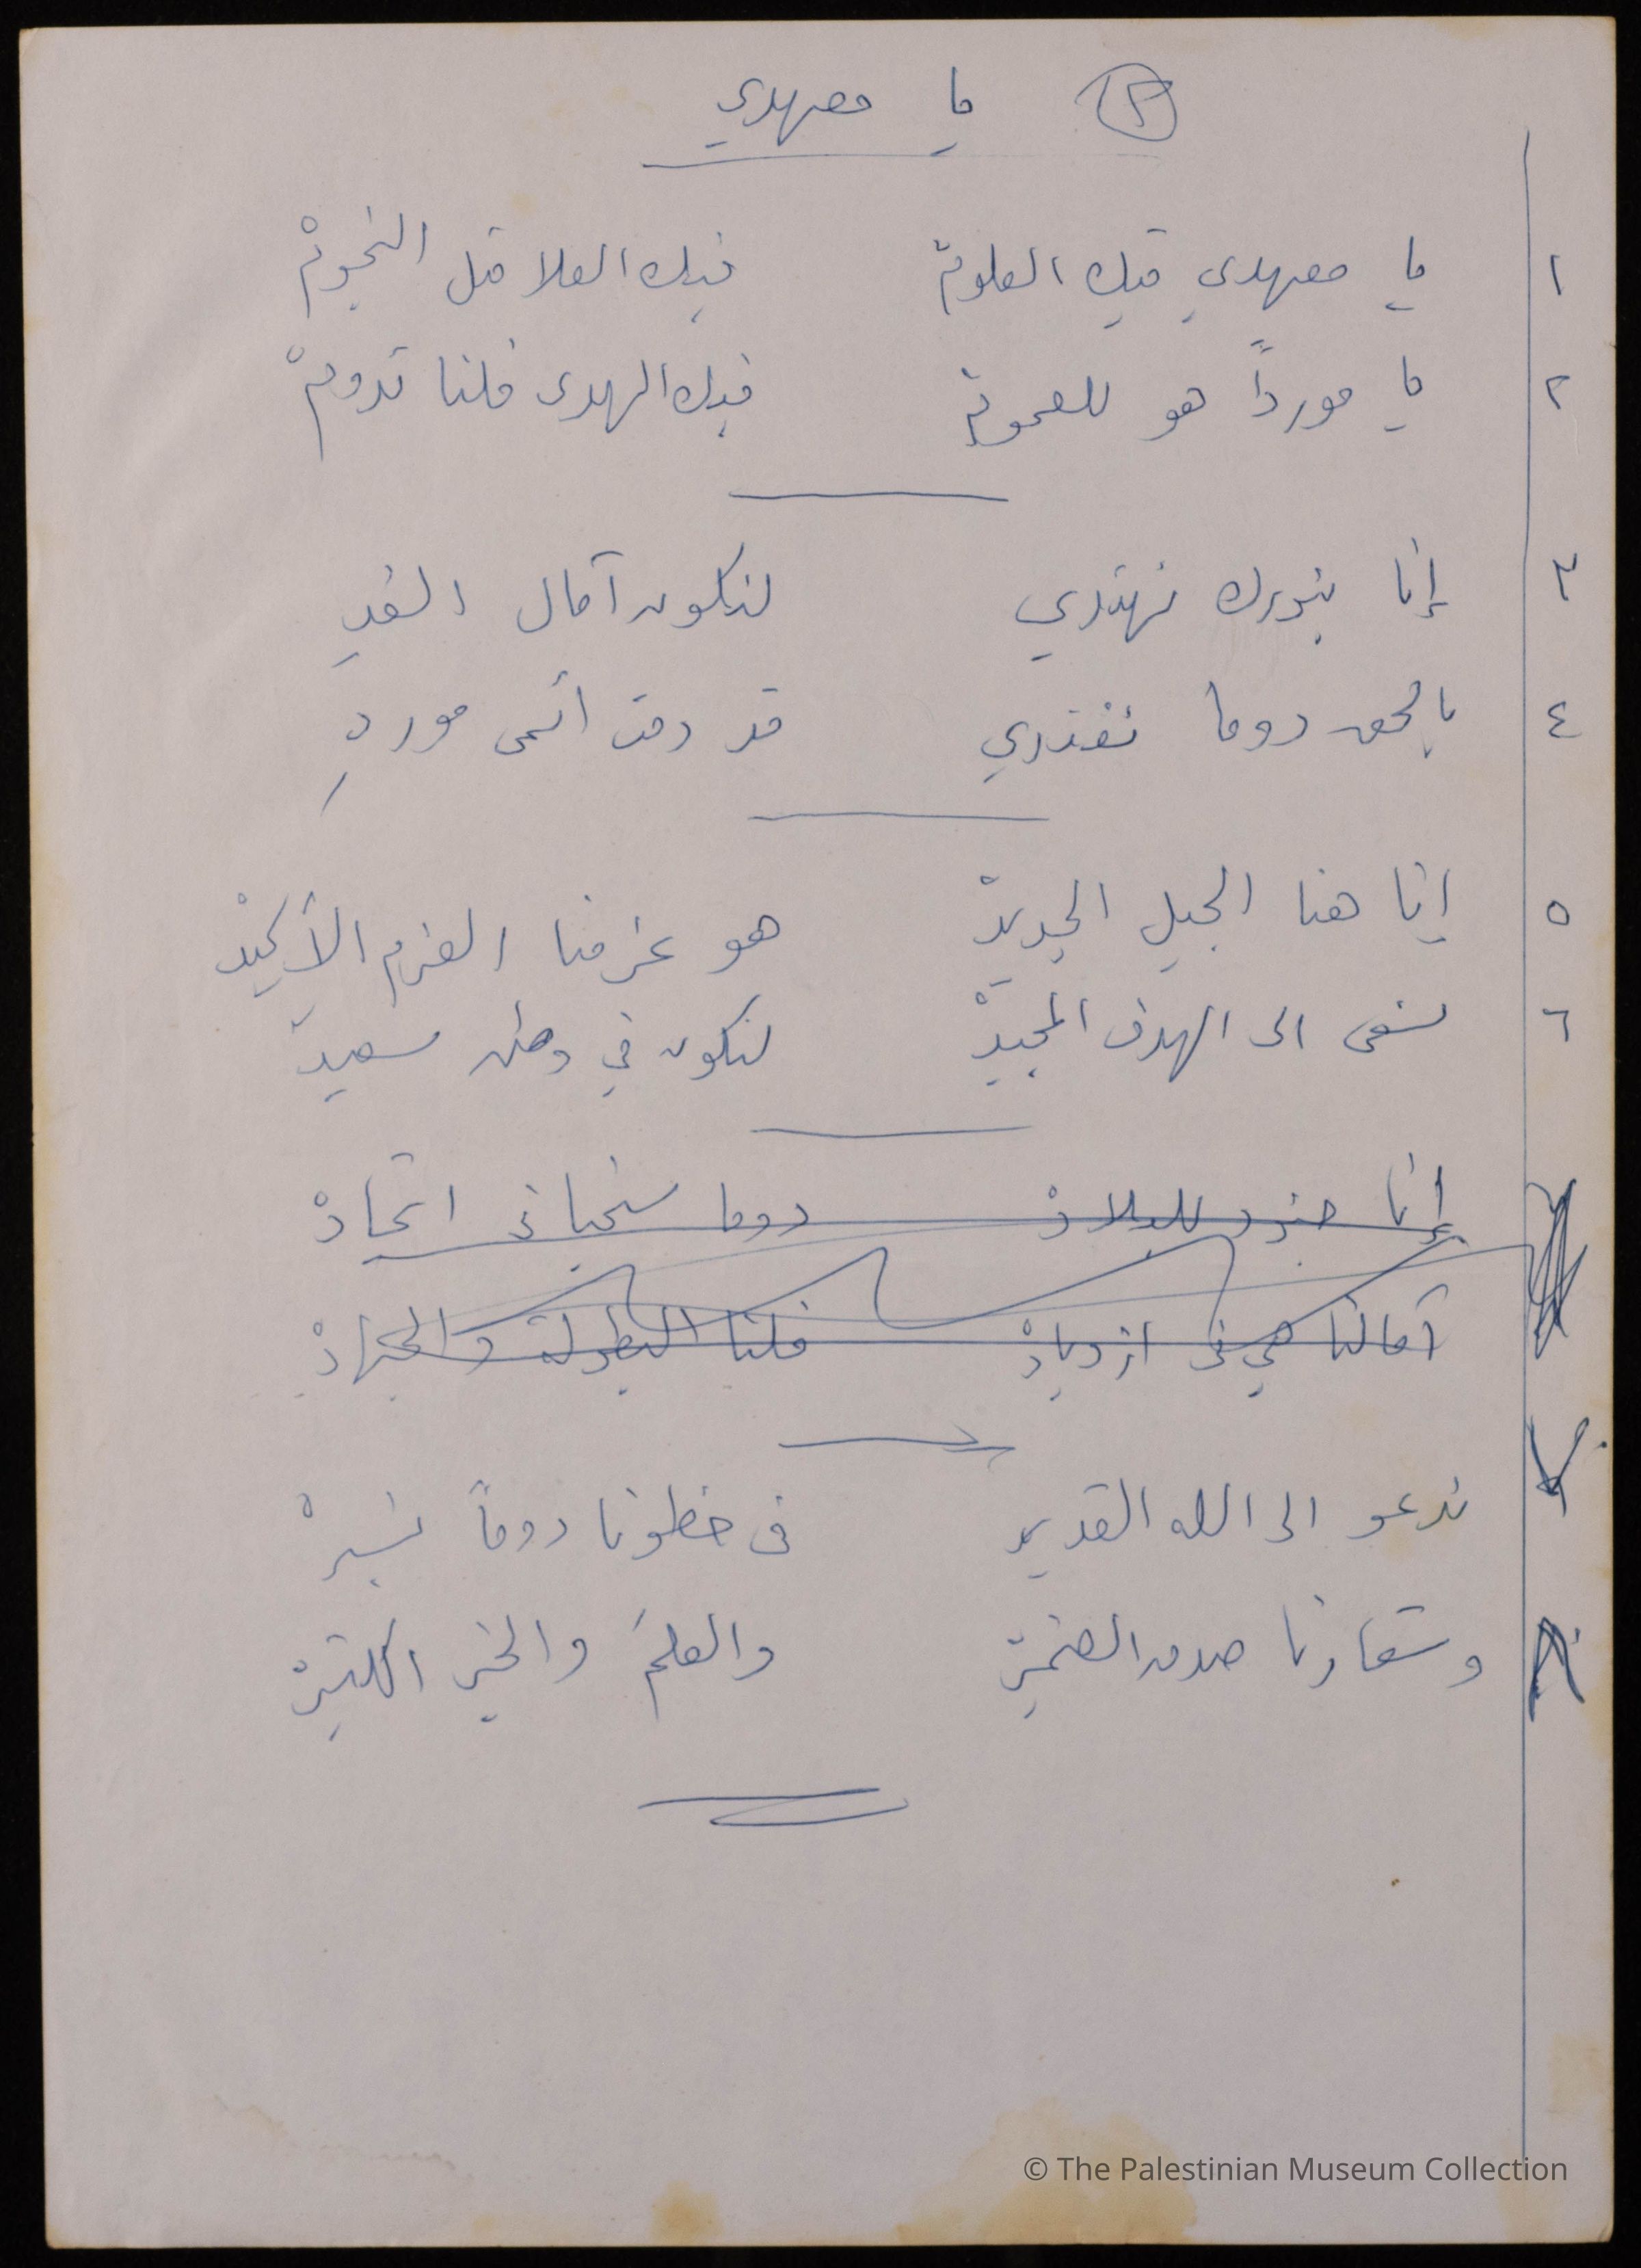 ٢ يا معهدي
١ يا معهدي فيك العلومْ فيك العلا مثل النجومْ
٢ يا مورداً هو للعمومْ فيك الهدى فلنا تدومْ
٣ إنا بنورك نهتدي لنكون آمال الغدِ
٤ بالحق دوما نغتدي قد دمت أسمى موردِ
٥ إنا هنا الجيل الجديدْ هو عزمنا العزم الأكيدْ
٦ نسعى الى الهدف المجيدْ لنكون في وطن سعيدْ
إنا جنود للبلادْ دوما سنحيا في اتحادْ
آمالنا هي في ازديادْ فلنا البطولة والجهادْ
٧ ندعو الى الله القدير في خطونا دوماً نسيرْ
٨ وشعارنا صدق الضميرْ والعلمَ والخير الكثيرْ
© The Palestinian Museum Collection